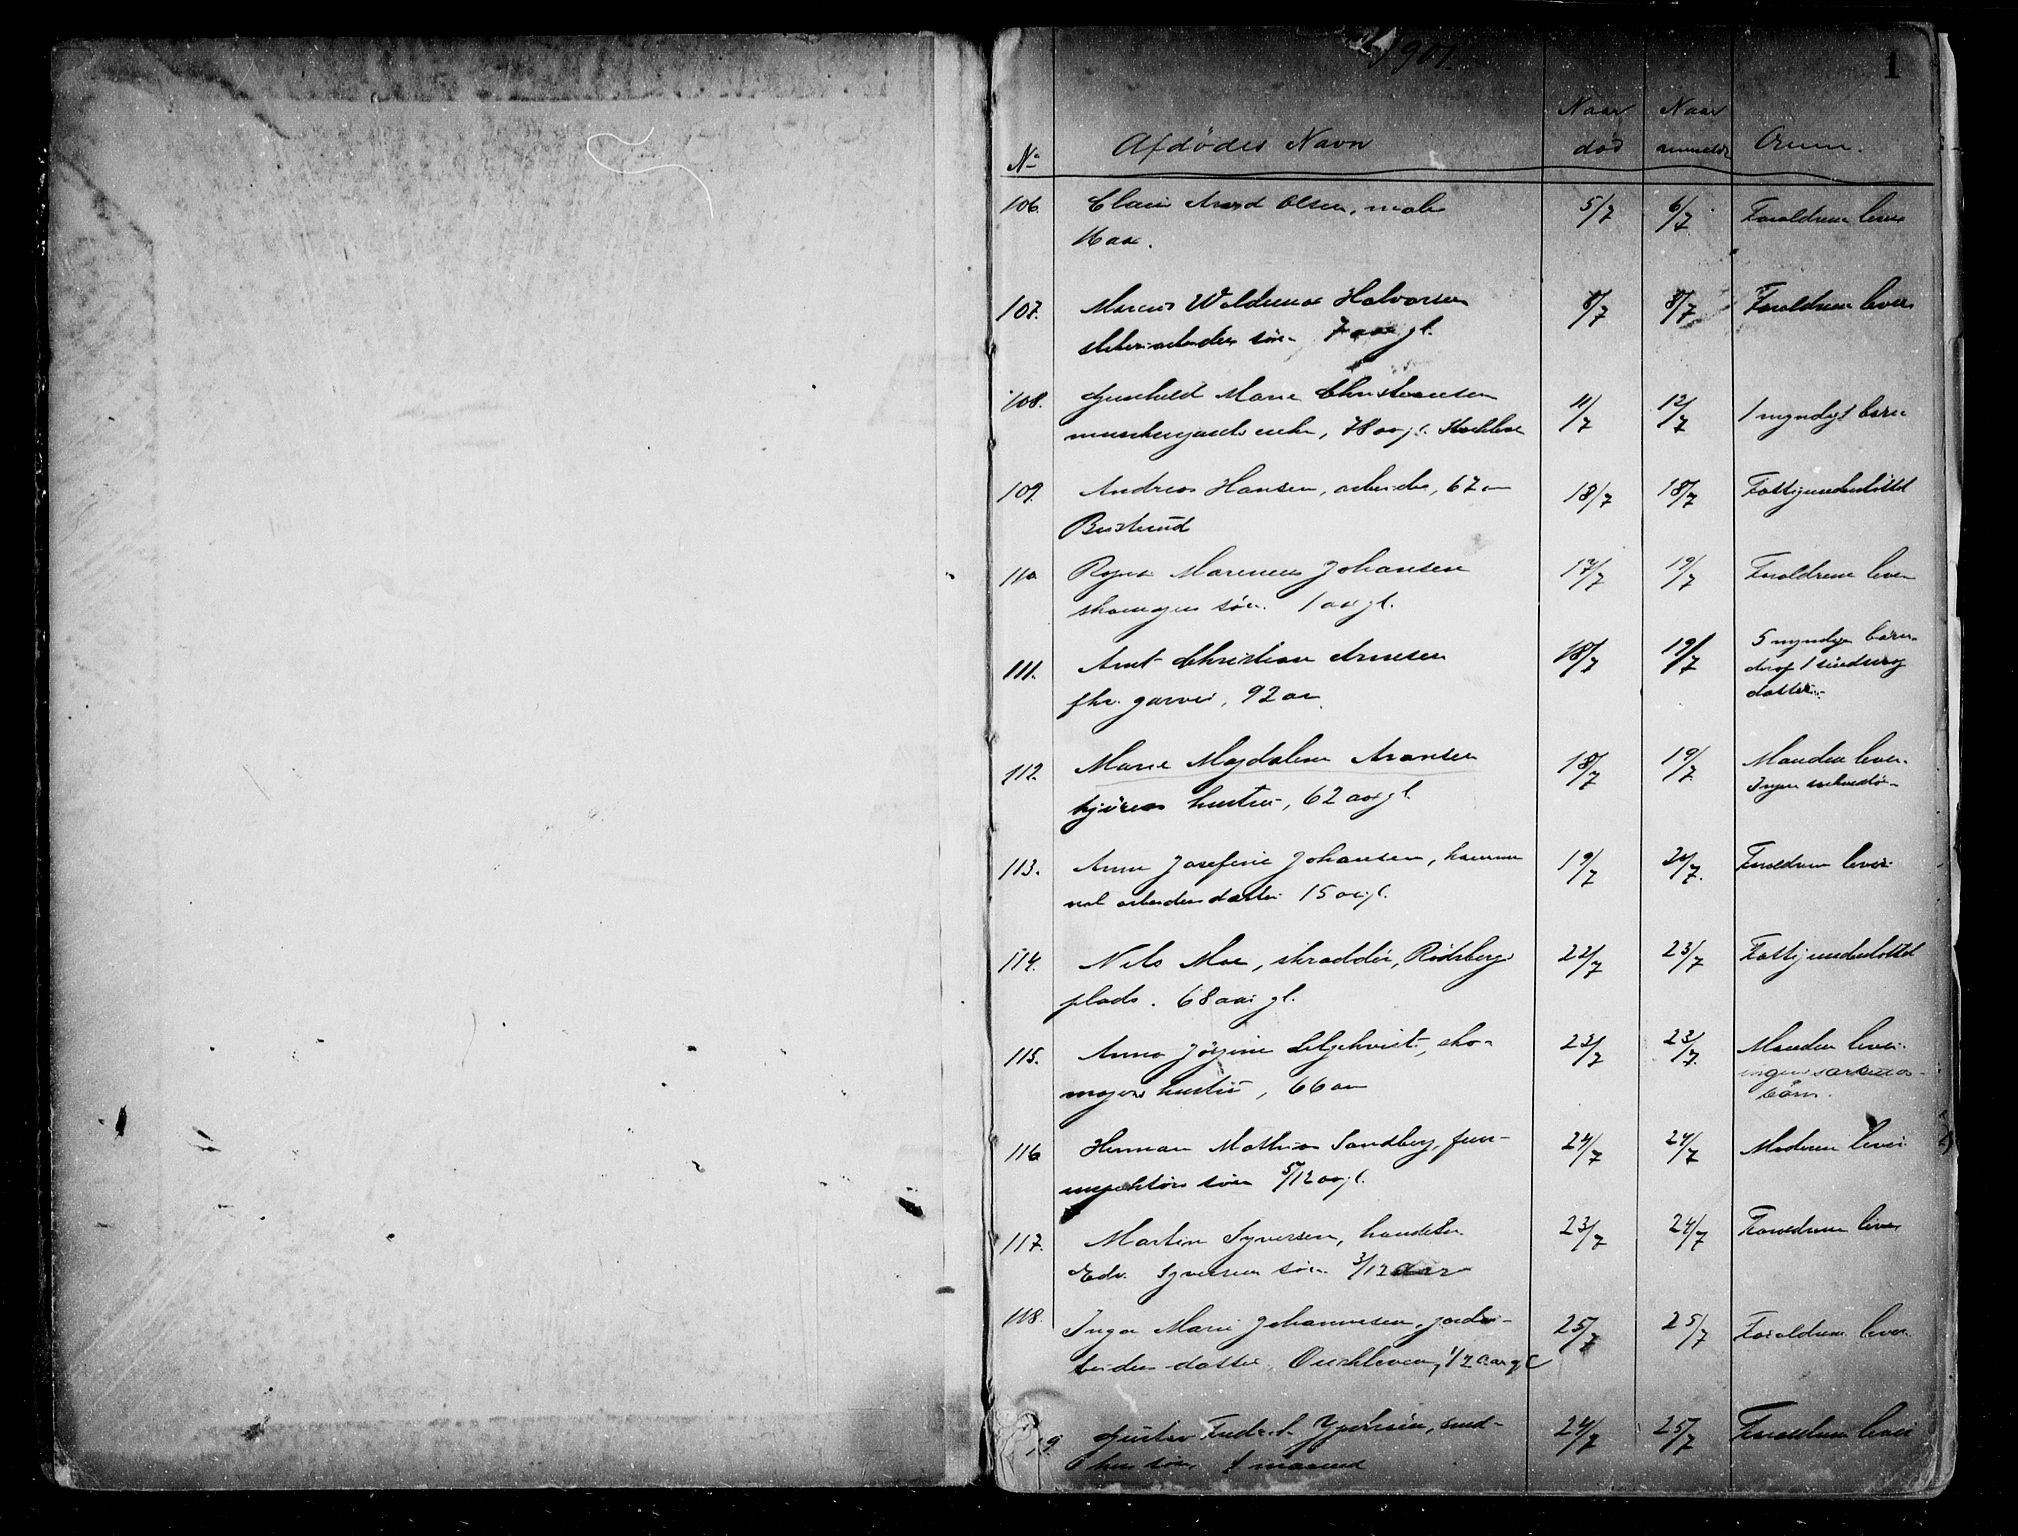 1901.
1
No Afdødes Navn Naar død Naar anmeldt Anm.
106. Olsen, 5/7 6/7 Forældrene lever
107. Marius Waldemar Halvorsen 8/7 8/7 Forældrene lever
søn 7 aar gl.
108. Gunhild Marie Christensen 11/7 12/7 1 myndigt barn
enke, 78 aar gl.
109. Andreas Hansen, arbeider, 67 aar 18/7 18/7 Fattigunderstøttet
Busterud
110 Marenius Johansen 17/7 19/7 Forældrene lever
skomager søn. 1 aar gl.
111. Amt Christian Arnesen 18/7 19/7 5 myndige børn
fhv. garver, 92 aar deraf 1 sindssyg
datter
112. Marie Magdalene Aronsen 18/7 19/7 Manden lever.
kjørers hustru, 62 aar gl. Ingen
113. Anna Josefine Johansen, 19/7 20/7. Forældrene lever
arbeiders datter 15 aar gl.
114. Nils Moe, skrædder, Rødsberg 22/7 23/7 Fattigunderstøttet
plads. 68 aar gl.
115. Anna Jørgine Liljekvist, sko- 23/7 23/7. Manden lever.
magers hustru, 66 aar ingen
børn.
116 Herman Mathias Sandberg, 24/7 24/7 Moderen lever
søn 5/12 aar gl.
117. Martin Syversen, handelsm. 23/7 24/7 Forældrene lever
Edv. Syversens søn 3/12 aar
118. Inga Marie Johannesen, 25/7 25/7 Forældrene lever
datter, 1/2 aar gl
119 Gustav Fredrik 24/7 25/7 Forældrene lever
søn maaned